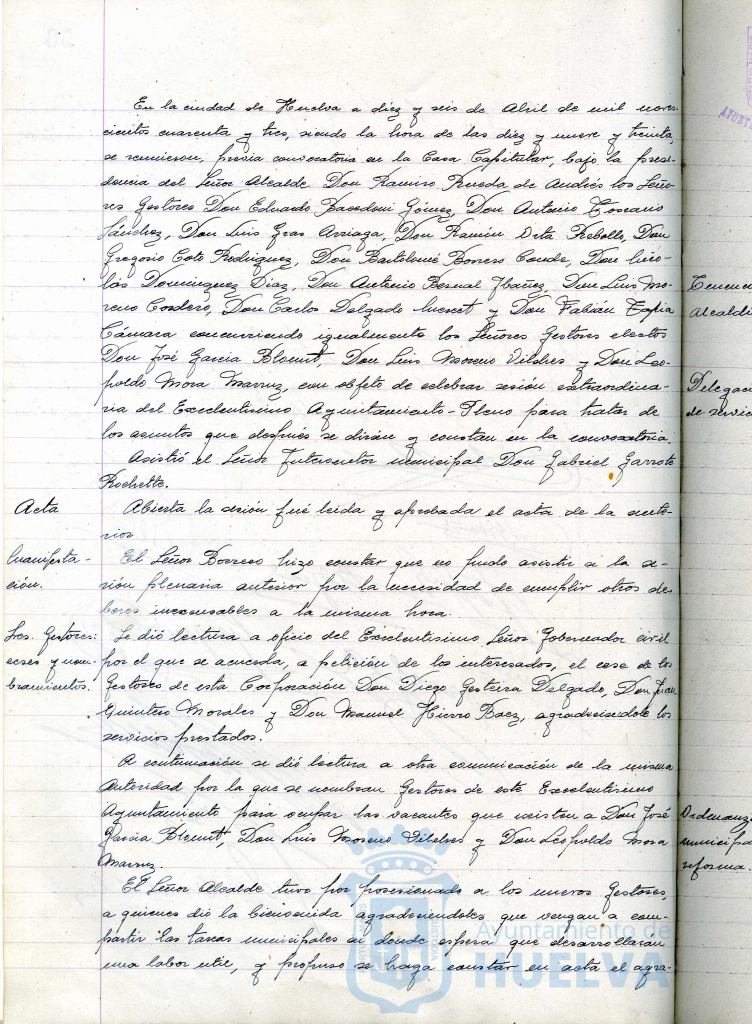 En la ciudad de Huelva a diez y seis de Abril de mil nove-
cientos cuarenta y tres, siendo la hora de las diez y nueve y treinta,
se reunieron, previa convocatoria en la Casa Capitular, bajo la presi-
dencia del Señor Alcalde Don Ramiro Rueda de Andrés los Seño-
res Gestores Don Eduardo Gómez, Don Antonio Toscano
Sánchez, Don Luis Gras Arriaga, Don Ramón Orta Rebollo, Don
Gregorio Coto Rodríguez, Don Bartolomé Borrero Conde, Don Nico-
lás Domínguez Díaz, Don Antonio Bernal Ibáñez, Don Luis Mo-
reno Cordero, Don Carlos Delgado y Don Fabián Tapia
Cámara concurriendo igualmente los Señores Gestores electos
Don José García, Don Luis Moreno Vilches y Don Leo-
poldo Mora, con objeto de celebrar sesión extraordina-
ria del Excelentísimo Ayuntamiento-Pleno para tratar de
los asuntos que después se dirán y constan en la convocatoria.
Asistió el Señor Interventor municipal Don Gabriel Garrote
Rochette.
Acta
Abierta la sesión fué leida y aprobada el acta de la ante-
rior
Manifesta-
ción.
El Señor Borrero hizo constar que no pudo asistir a la se-
sión plenaria anterior por la necesidad de cumplir otros de-
beres inexcusables a la misma hora.
Sres. Gestores:
ceses y nom-
bramientos.
Se dió lectura a oficio del Excelentísimo Señor Gobernador civil
por el que se acuerda, a petición de los interesados, el cese de los
Gestores de esta Corporación Don Diego Gesteira Delgado, Don Juan
Quintero Morales y Don Manuel Hierro Baez, agradeciendole los
servicios prestados.
A continuación se dió lectura a otra comunicación de la misma
Autoridad por la que se nombran Gestores de este Excelentísimo
Ayuntamiento para ocupar las vacantes que existen a Don José
García, Don Luis Moreno Vilches y Don Leopoldo Mora
El Señor Alcalde tuvo por posesionado a los nuevos Gestores,
a quienes dió la bienvenida agradeciendoles que vengan a com-
partir las tareas municipales en donde espera que desarrollaran
una labor util, y propuso se haga constar en acta el agra-
Alcaldí
Delegac
de servic
Ordenanz
municipa
reforma.
Ayuntamiento de
HUELVA